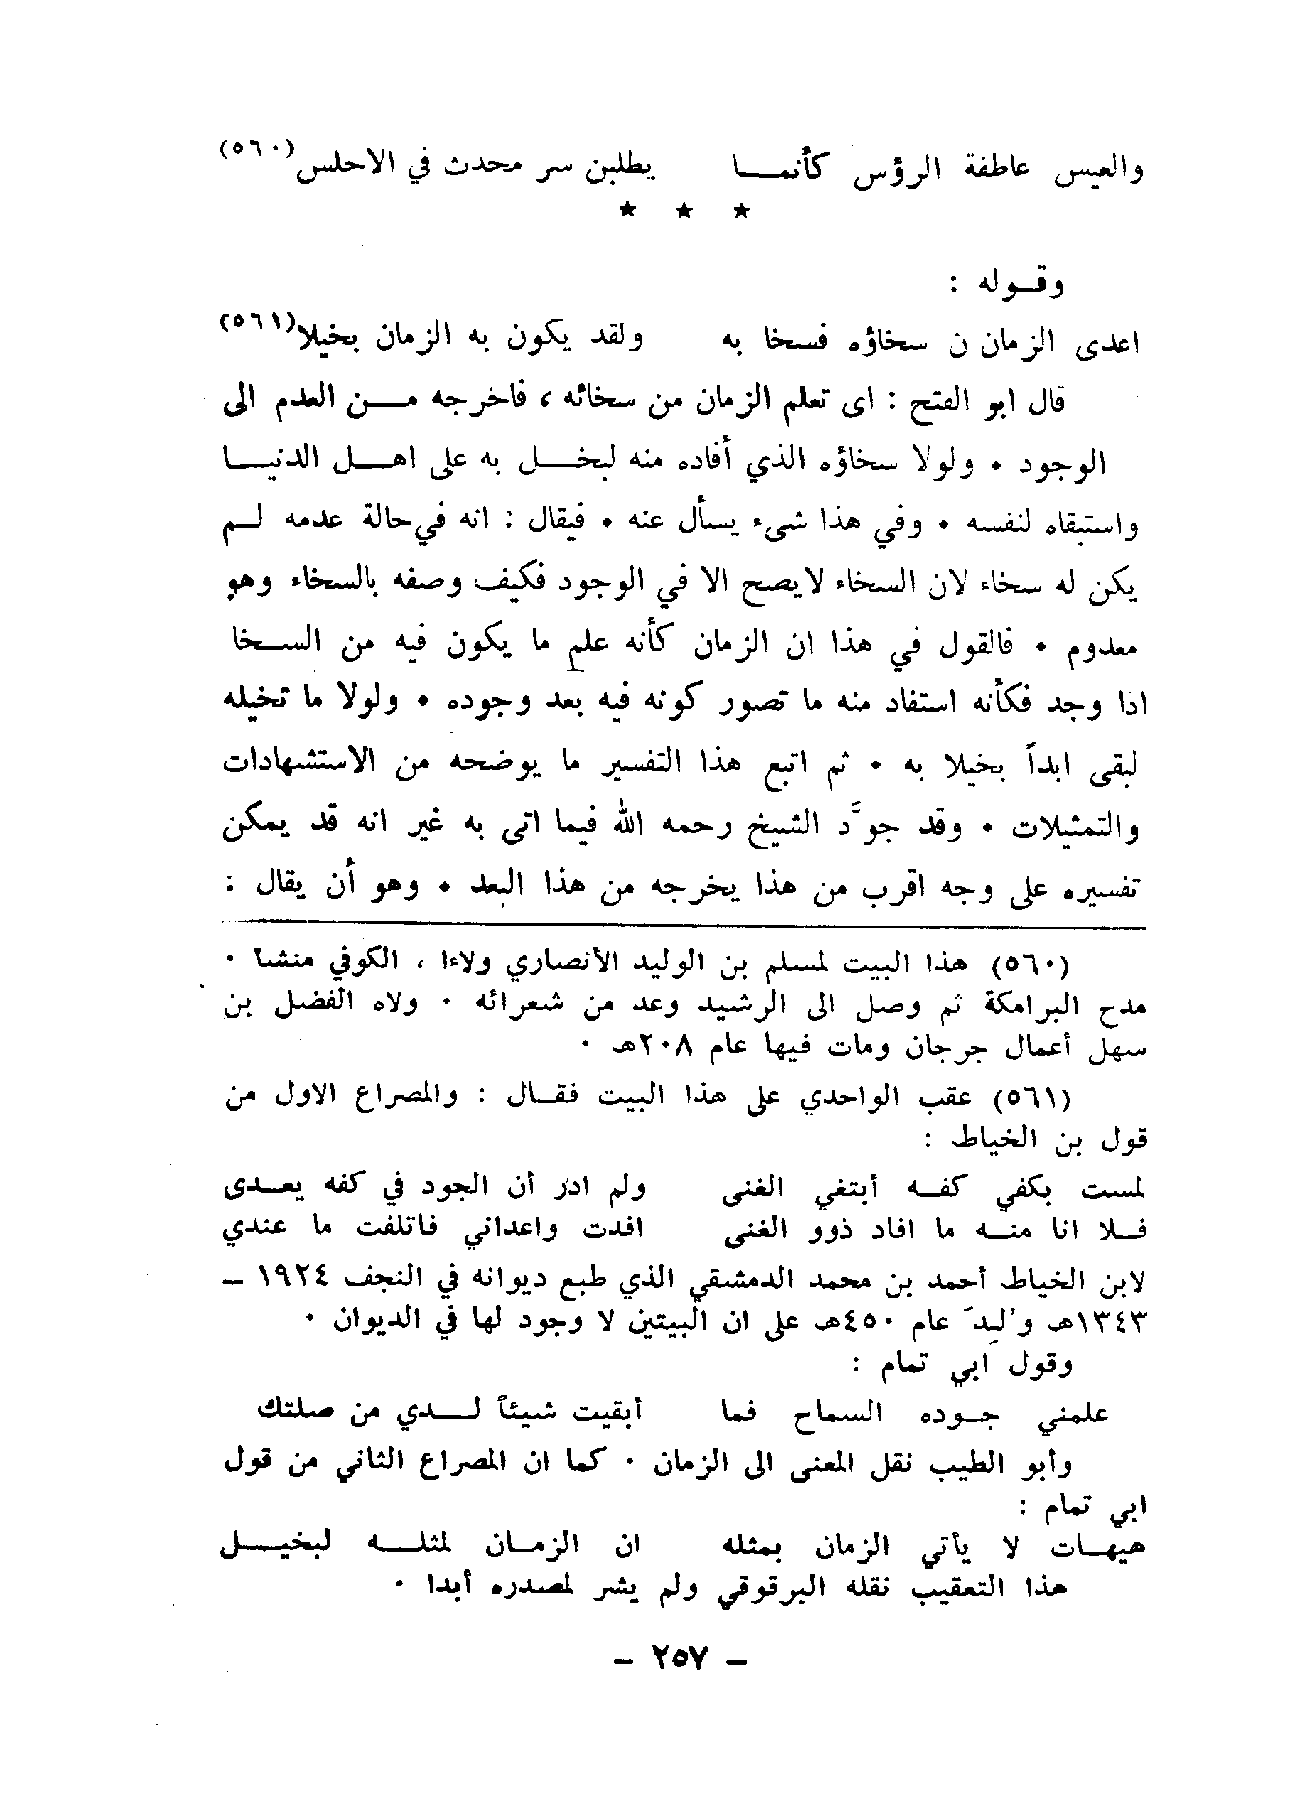 والعيس عاطفة الرؤس كأنمـــا يطلبن سر محدث في الاحلس(٥٦٠)
★ ★ ★
وقـوله :
اعدى الزمان ن سخاؤه فسخا به ولقد يكون به الزمان بخيلا(٥٦١)
قال ابو الفتح : اى تعلم الزمان من سخائه ، فاخرجه مــن العدم الى
الوجود • ولولا سخاؤه الذي أفاده منه لبخــل به على اهــل الدنيــا
واستبقاه لنفسه • وفي هذا شىء يسأل عنه • فيقال : انه في حالة عدمه لـم
يكن له سخاء لان السخاء لا يصح الا في الوجود فكيف وصفه بالسخاء وهو
معدوم • فالقول في هذا ان الزمان كأنه علم ما يكون فيه من الســخا
اذا وجد فكأنه استفاد منه ما تصور كونه فيه بعد وجوده • ولولا ما تخيله
لبقى ابداً بخيلا به • ثم اتبع هذا التفسير ما يوضحه من الاستشهادات
والتمثيلات • وقد جوَّد الشيخ رحمه الله فيما اتى به غير انه قد يمكن
تفسيره على وجه اقرب من هذا يخرجه من هذا البعد • وهو أن يقال :
(٥٦٠) هذا البيت لمسلم بن الوليد الأنصاري ولاءا ، الكوفي منشا •
مدح البرامكة ثم وصل الى الرشيد وعد من شعرائه • ولاه الفضل بن
سهل أعمال جرجان ومات فيها عام ٢٠٨هـ •
(٥٦١) عقب الواحدي على هذا البيت فقـال : والمصراع الاول من
قول بن الخياط :
لمست بكفي كفـه أبتغي الغنى ولم ادر أن الجود في كفه يعـدى
فـلا انا منـه ما افاد ذوو الغنى افدت واعداني فاتلفت ما عندي
لابن الخياط أحمد بن محمد الدمشقي الذي طبع ديوانه في النجف ١٩٢٤ –
١٣٤٣هـ وُلِدَ عام ٤٥٠هـ على ان البيتين لا وجود لها في الديوان •
وقول ابي تمام :
علمني جـوده السماح فما أبقيت شيئاً لــدي من صلتك
وأبو الطيب نقل المعنى الى الزمان • كما ان المصراع الثاني من قول
ابي تمام :
هيهـات لا يأتي الزمان بمثله ان الزمـان لمثلــه لبخيــل
هذا التعقيب نقله البرقوقي ولم يشر لمصدره أبدا •
– ٢٥٧ –